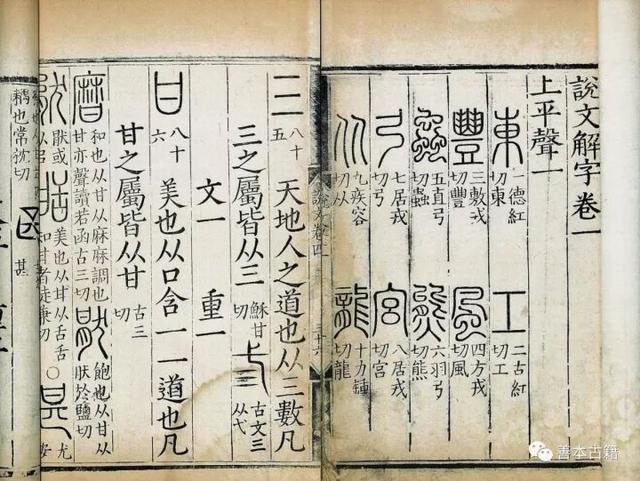 說文解字卷一
上平聲一
東 一德紅切東 工 二古紅切工
豐 三敷戎切豐 風 四方戎切風
蟲 五直弓切蟲 熊 六羽弓切熊
弓 七居戎切弓 宮 八居戎切宮
从 九疾容切从 龍 十力鍾切龍
說文卷四 三十六
三 八十五 天地人之道也从三數凡
三之屬皆从三 穌甘切 弎 古文三从弋
文一 重一
甘 八十六 美也从口含一一道也凡
甘之屬皆从甘 古三切
𤯌 和也从甘从麻麻調也甘亦聲讀若函古三切 甛 美也从甘从舌舌知甘者徒兼切 猒 飽也从甘从肰於鹽切
猒或 甚 尤安
耦也常枕切 甚
善本古籍